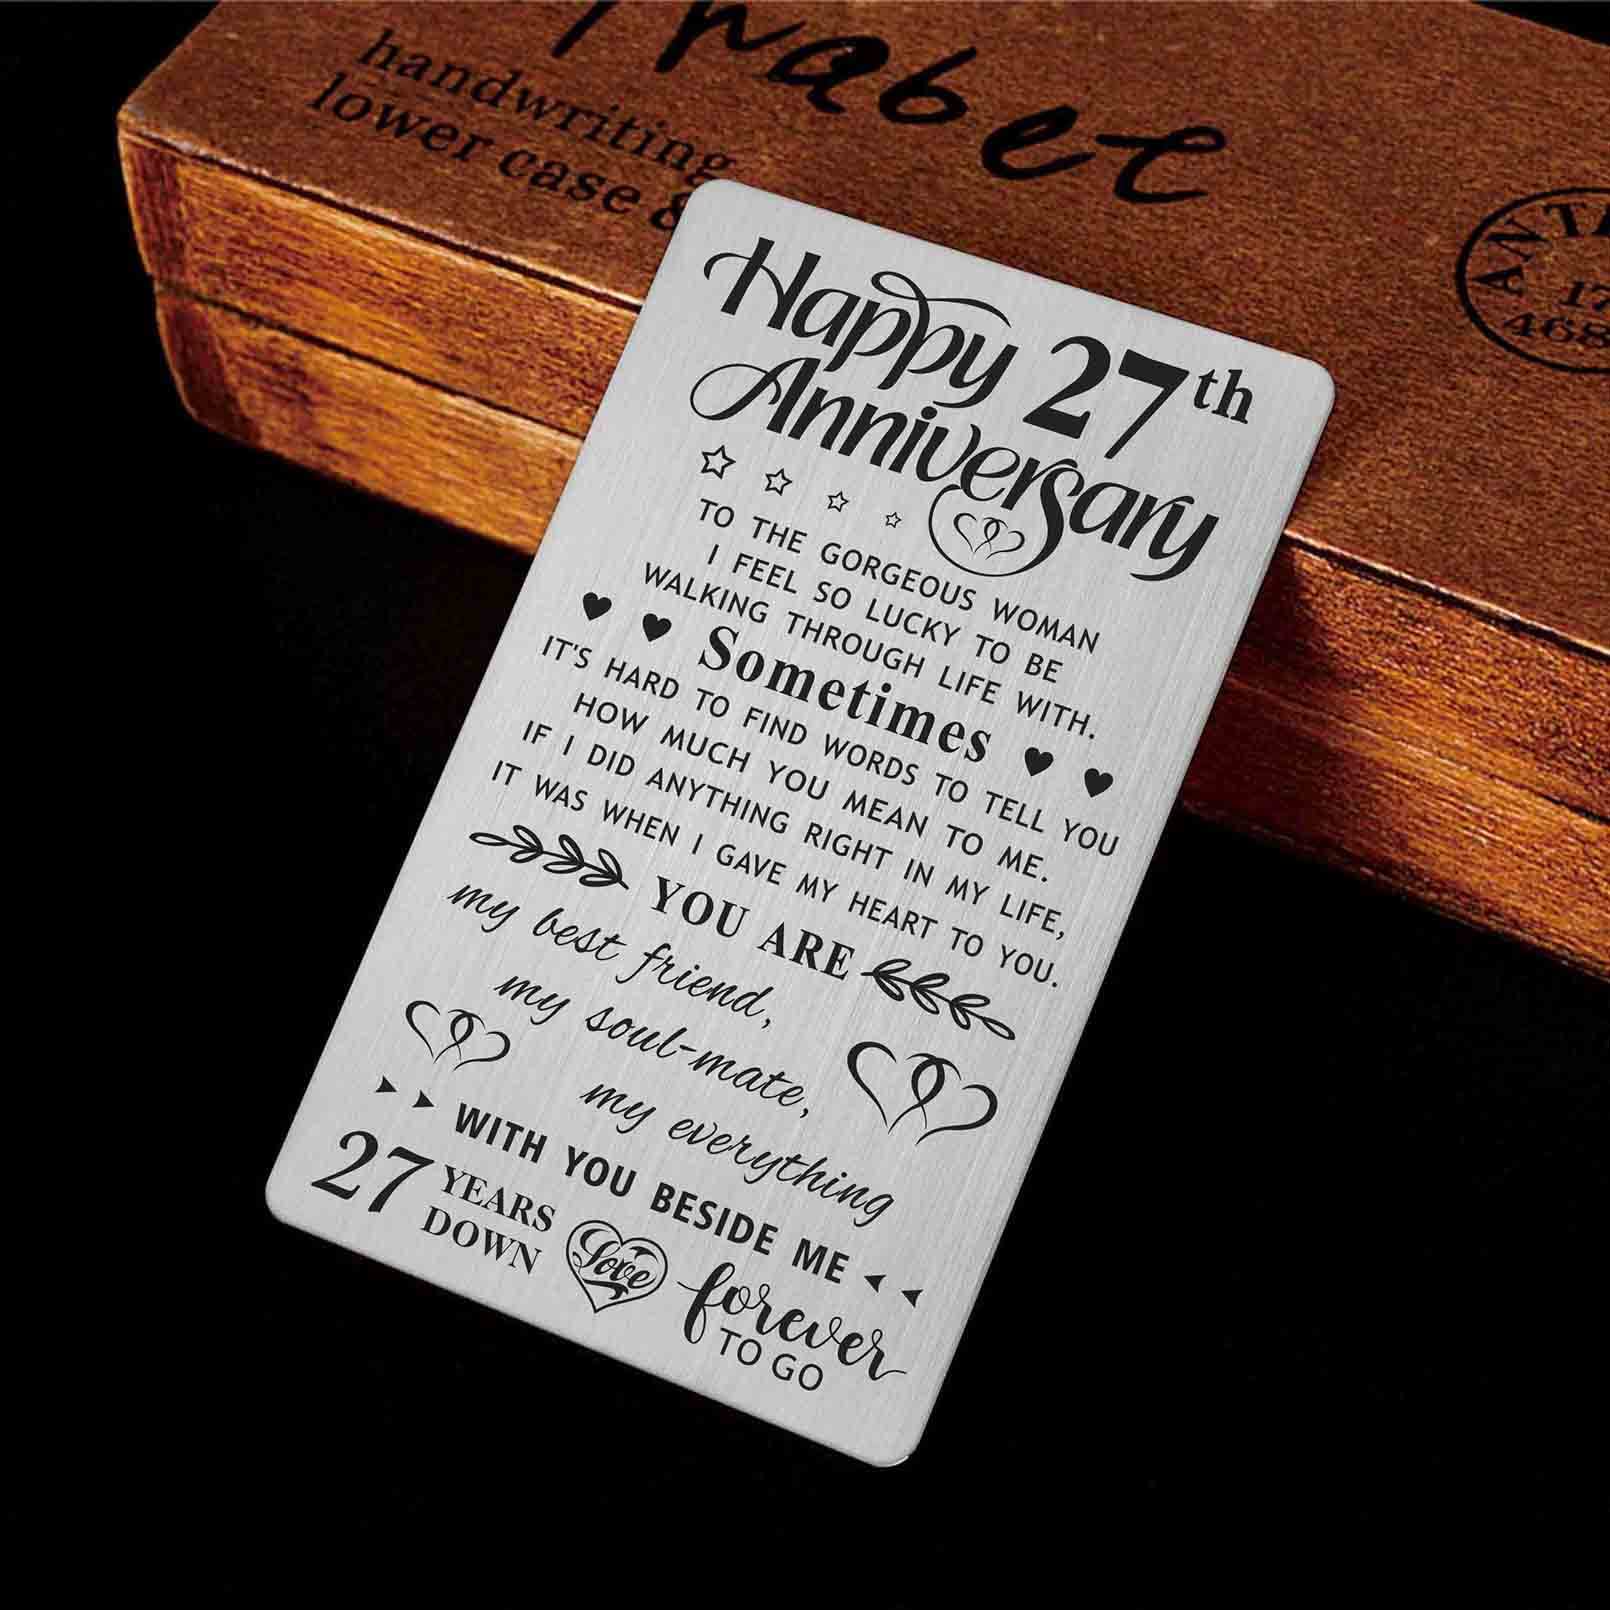 handwriting
lower case &
Happy 27th
Anniversary
TO THE GORGEOUS WOMAN
I FEEL SO LUCKY TO BE
WALKING THROUGH LIFE WITH.
Sometimes
IT'S HARD TO FIND WORDS TO TELL YOU
HOW MUCH YOU MEAN TO ME.
IF I DID ANYTHING RIGHT IN MY LIFE,
IT WAS WHEN I GAVE MY HEART TO YOU.
YOU ARE
my best friend,
my soul-mate,
my everything
WITH YOU BESIDE ME
27 YEARS
DOWN
Love
forever
TO GO